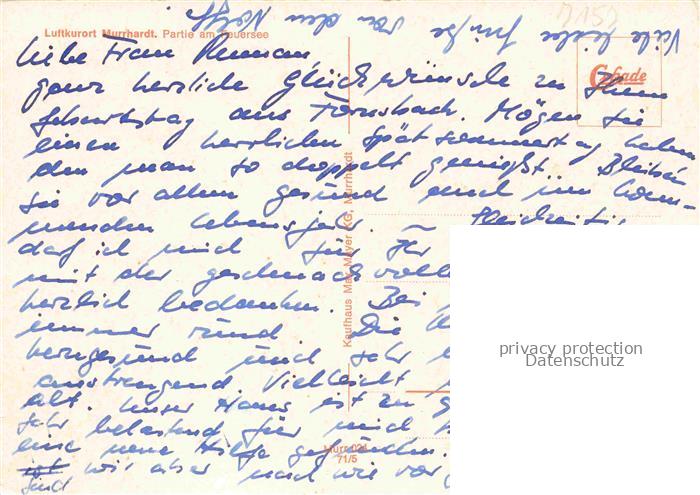 Viele liebe Grüße von den
Luftkurort Murrhardt. Partie am Feuersee
Liebe Frau
ganz herzliche Glückwünsche zu Ihrem
Geburtstag aus Fornsbach. Mögen Sie
einen herrlichen Spätsommertag haben
den man so doppelt genießt. Bleiben
Sie vor allem gesund auch im kom-
menden Lebensjahr. – Gleichzeitig
darf ich mich für Ihr
mit der geschmackvollen
herzlich bedanken. Bei
immer rund. Die
kerngesund und sehr
anstrengend. Vielleicht
alt. Unser Haus ist zu
sehr belastend für mich
eine neue Hilfe gefunden.
sind wir aber nach wie vor
Kaufhaus Max Mayer KG, Murrhardt
Murr 024
71/5
Schade
privacy protection
Datenschutz